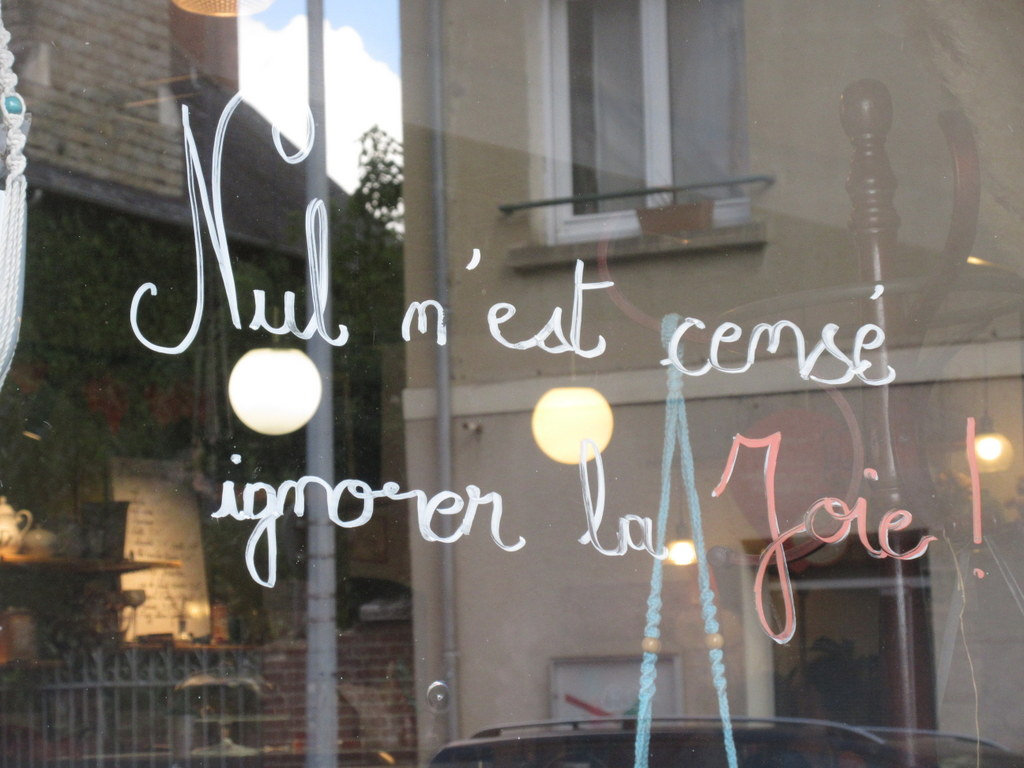 Nul n'est censé
ignorer la Joie !